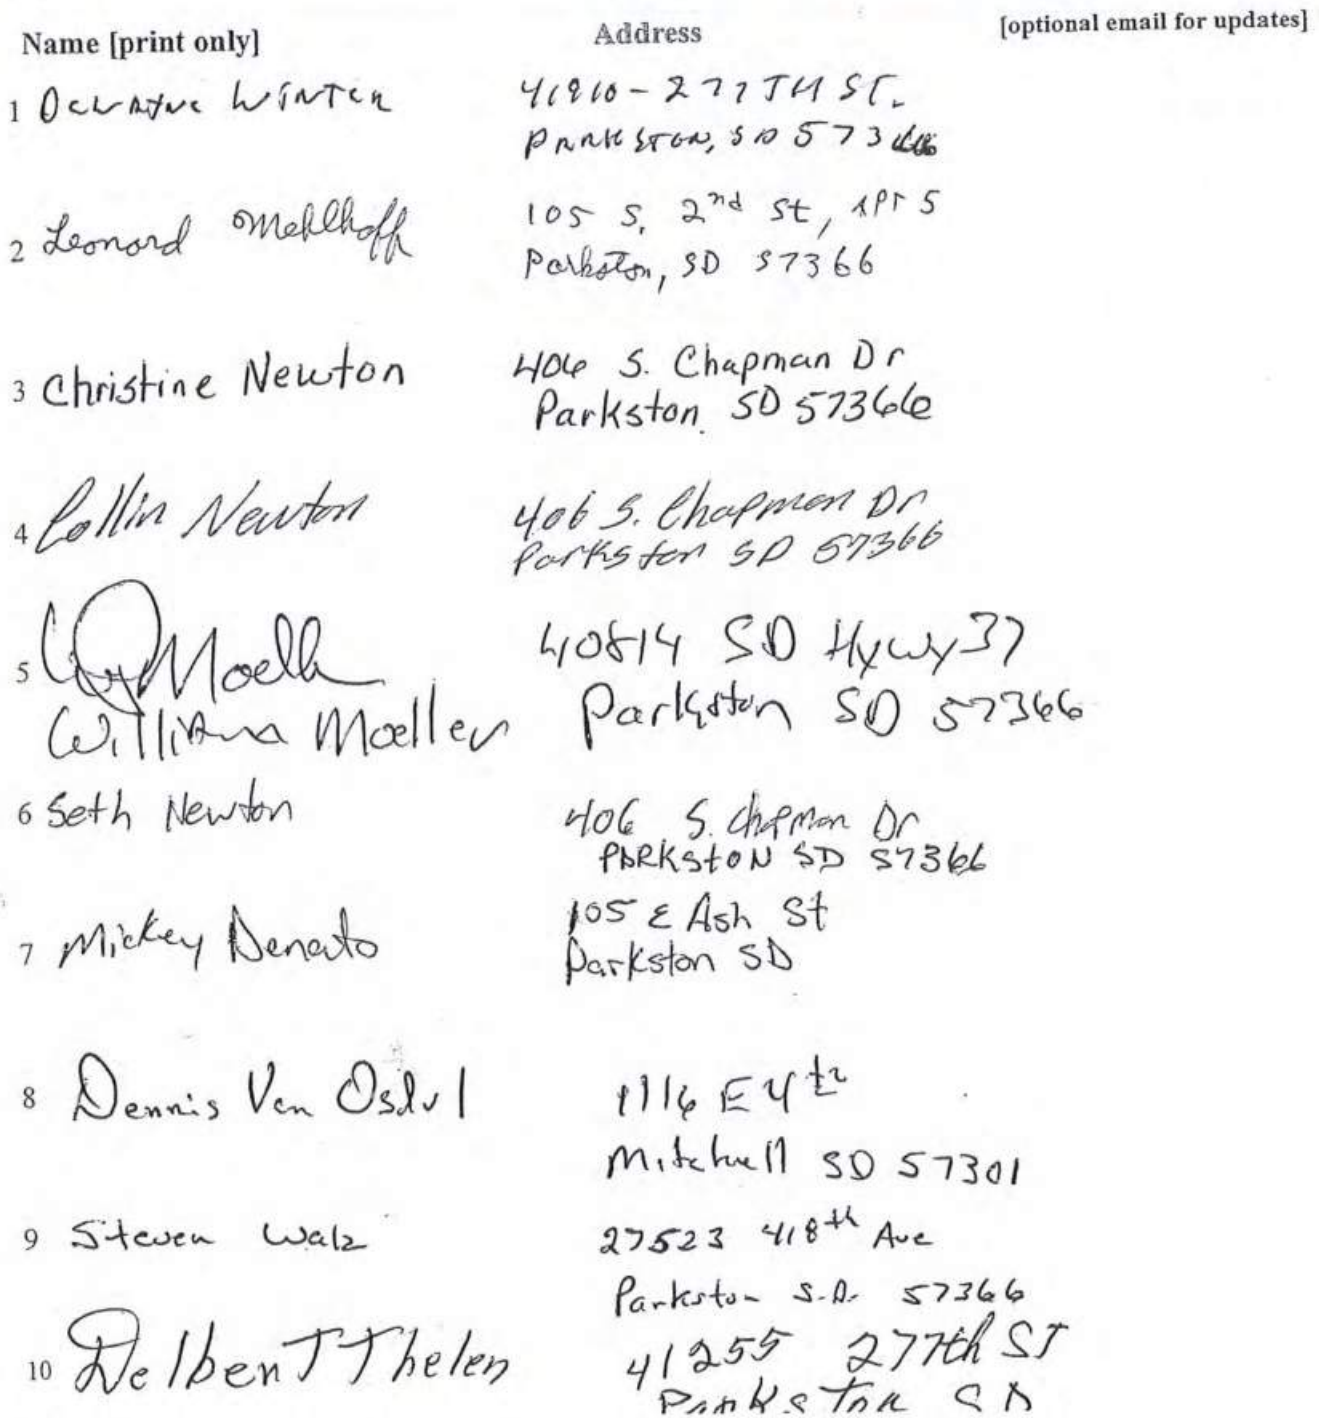 Name [print only] Address [optional email for updates]
1 WINTER 41910 - 277TH ST.
PARKSTON, SD 57366
2 Leonard Mehlhoff 105 S. 2nd St, APT 5
Parkston, SD 57366
3 Christine Newton 406 S. Chapman Dr
Parkston SD 57366
4 Collin Newton 406 S. Chapman Dr
Parkston SD 57366
5 Moell 40814 SD Hywy 37
William Moeller Parkston SD 57366
6 Seth Newton 406 S. Chapman Dr
PARKSTON SD 57366
7 Mickey Denato 105 E Ash St
Parkston SD
8 Dennis Van Osdel 1116 E 4th
Mitchell SD 57301
9 Steven Walz 27523 418th Ave
Parkston S.D. 57366
10 Delbert Thelen 41255 277th ST
Parkston SD